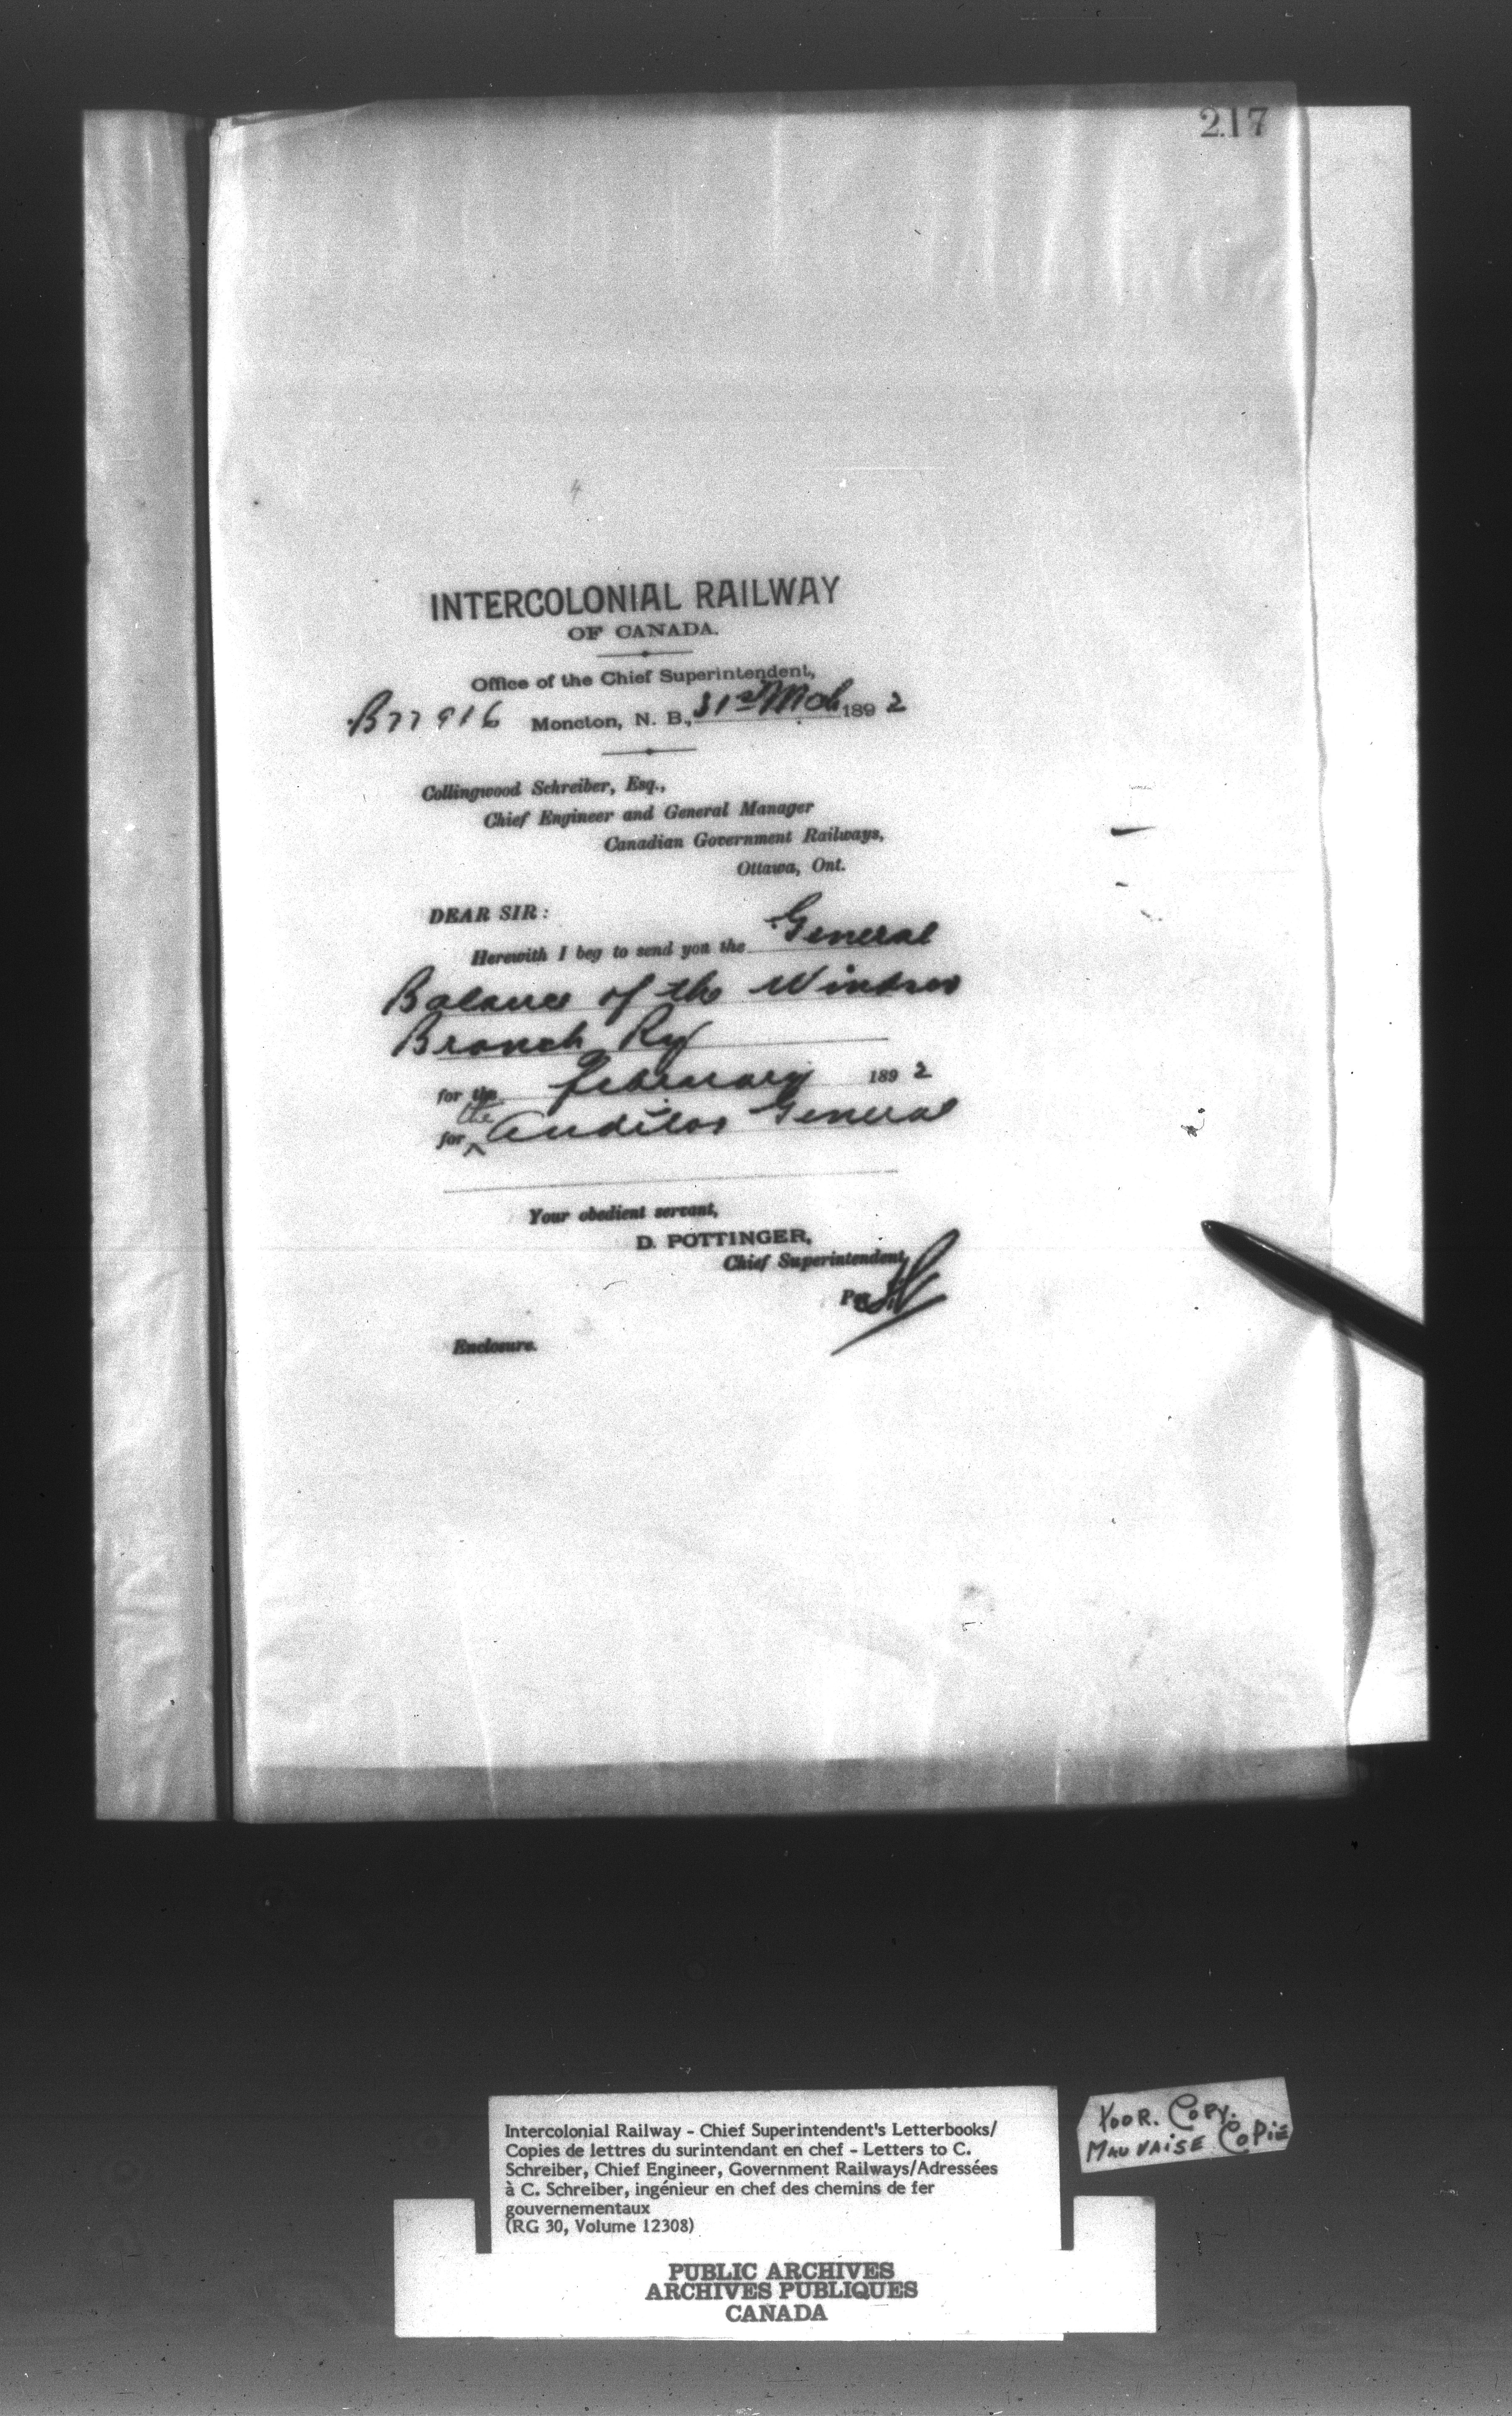 217
INTERCOLONIAL RAILWAY
OF CANADA.
Office of the Chief Superintendent,
B77916 Moncton, N. B., 31st Mch 1892
Collingwood Schreiber, Esq.,
Chief Engineer and General Manager
Canadian Government Railways,
Ottawa, Ont.
DEAR SIR:
Herewith I beg to send you the General
Balance of the Windsor
Branch Ry
for the February 1892
the
for ^ Auditor General
Your obedient servant,
D. POTTINGER,
Chief Superintendent,
Per
Enclosure.
Intercolonial Railway - Chief Superintendent's Letterbooks/
Copies de lettres du surintendant en chef - Letters to C.
Schreiber, Chief Engineer, Government Railways/Adressées
à C. Schreiber, ingénieur en chef des chemins de fer
gouvernementaux
(RG 30, Volume 12308)
POOR. COPY.
MAUVAISE COPIE
PUBLIC ARCHIVES
ARCHIVES PUBLIQUES
CANADA